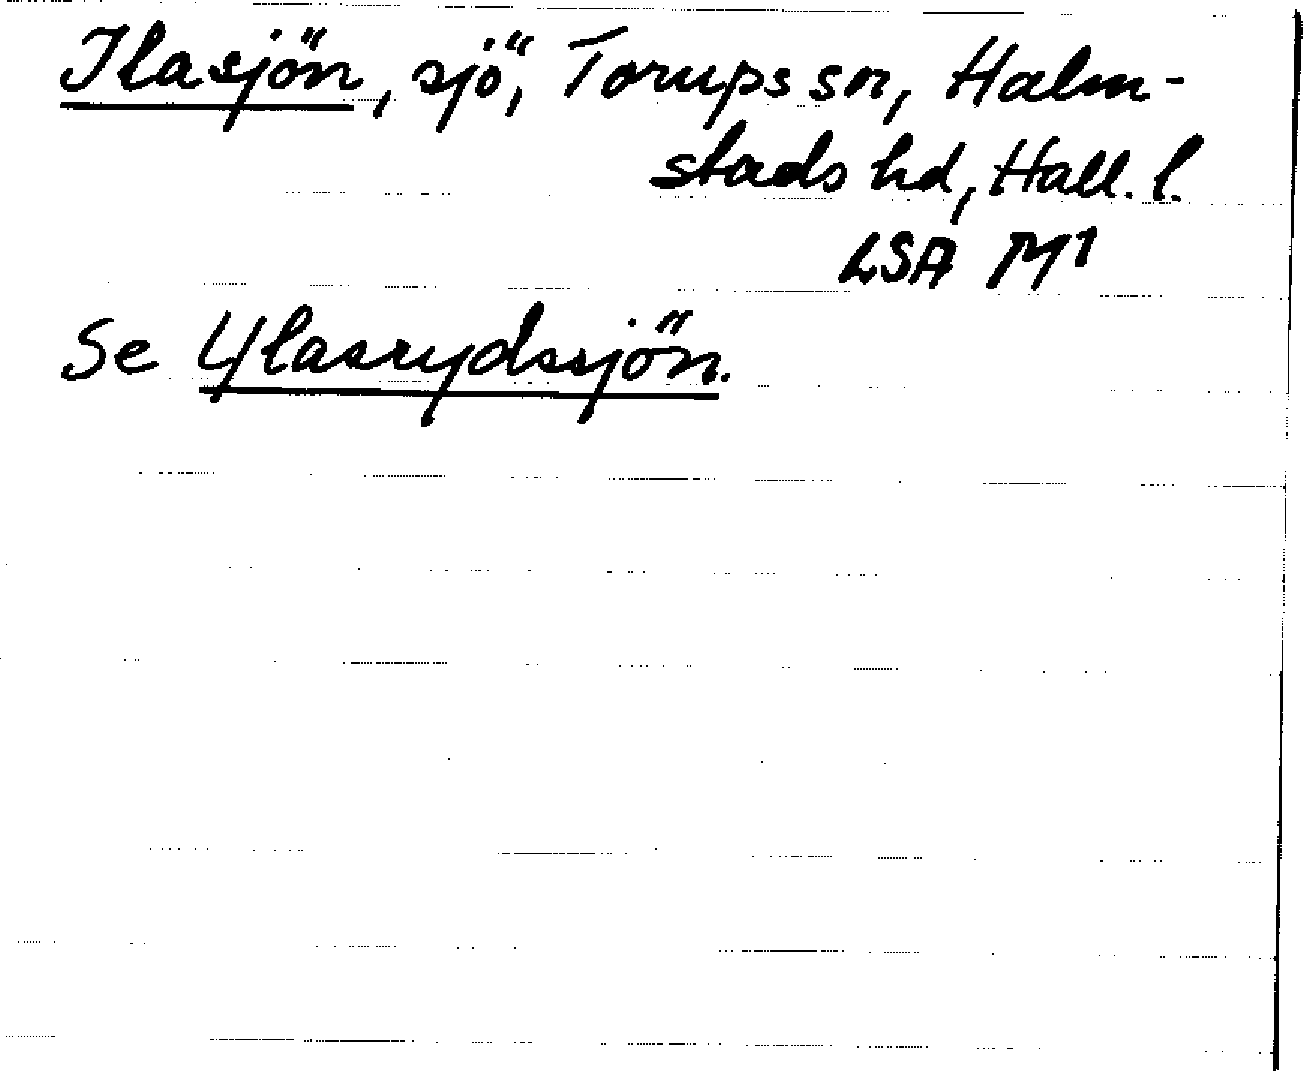 Ilasjön, sjö, Torups sn, Halm-
stads hd, Hall. l.
LSA M1
Se Ylasrydssjön.